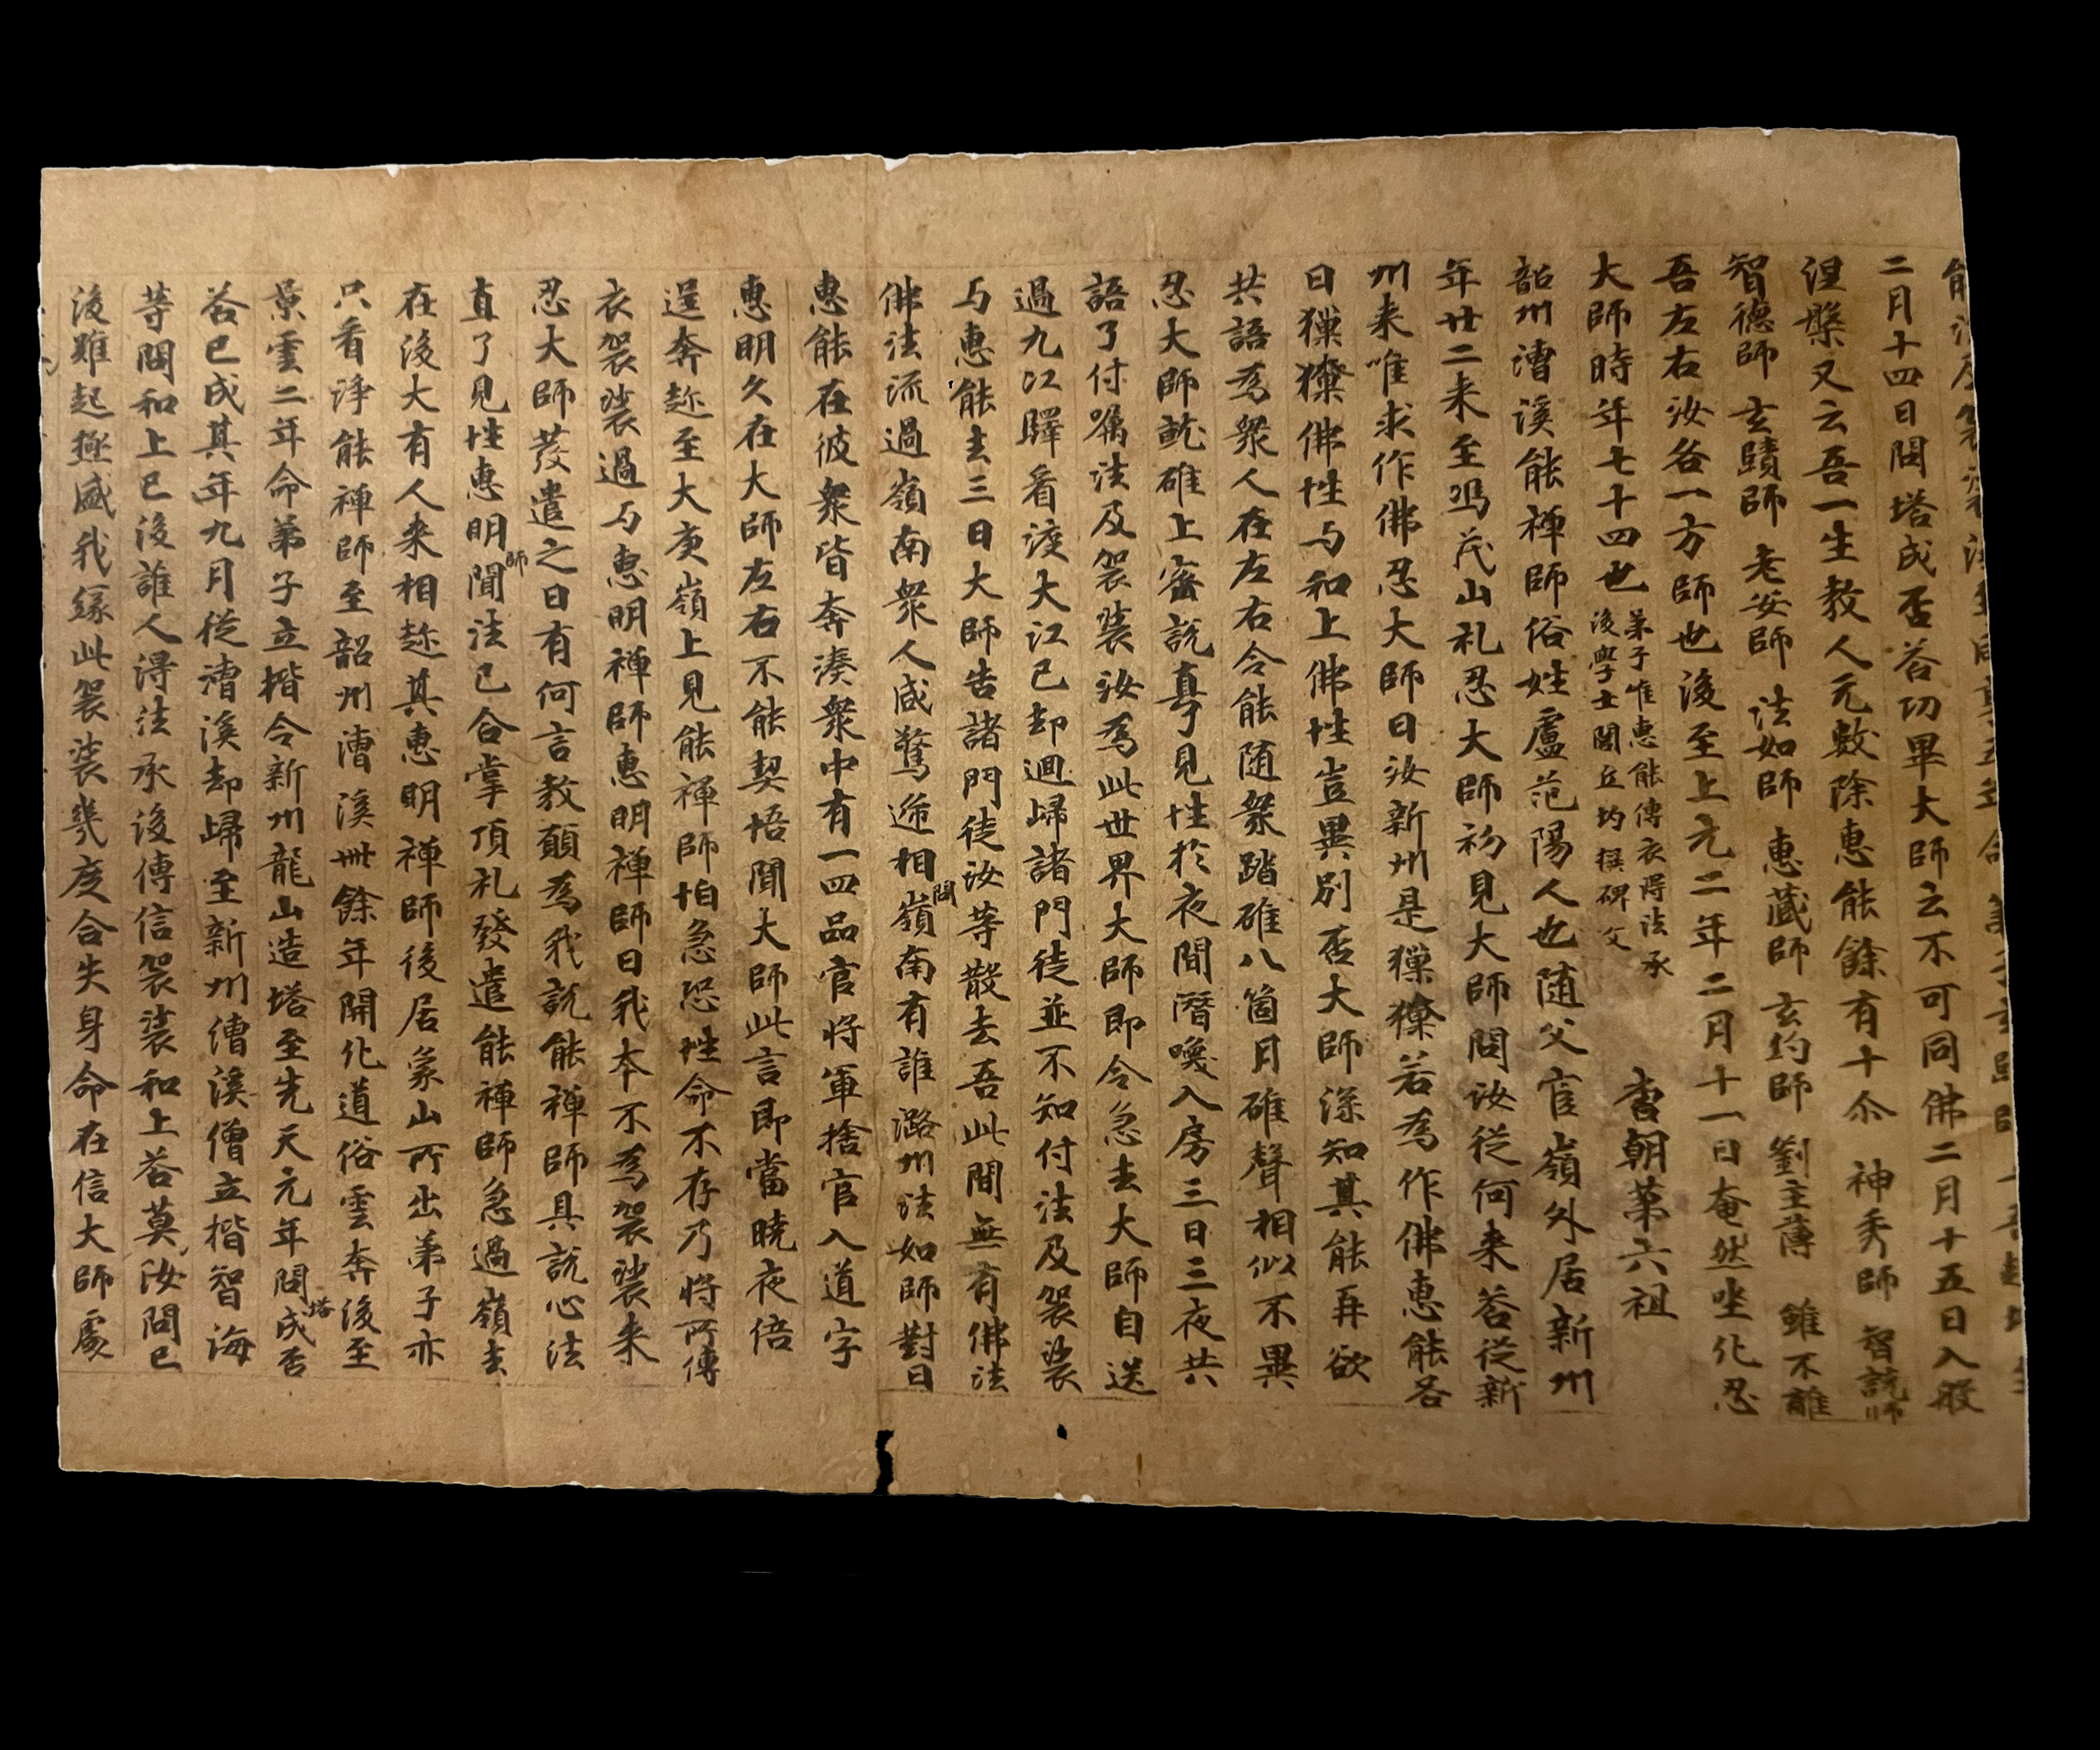 二月十四日問塔成否荅功畢大師云不可同佛二月十五日入般
涅槃又云吾一生教人元數除惠能餘有十尒 神秀師 智詵師
智德師 玄賾師 老安師 法如師 惠藏師 玄約師 劉主薄 雖不離
吾左右汝各一方師也後至上元二年二月十一日奄然坐化忍
大師時年七十四也 弟子惟惠能傳衣得法承
後學士閭丘均撰碑文 唐朝第六祖
韶州漕溪能禪師俗姓盧范陽人也随父官嶺外居新州
年廿二来至馮茂山礼忍大師初見大師問汝從何来荅從新
州来唯求作佛忍大師曰汝新州是獦獠若為作佛惠能荅
曰獦獠佛性与和上佛性豈異別否大師深知其能再欲
共語為衆人在左右令能随衆踏碓八箇月碓聲相似不異
忍大師就碓上密說直了見性於夜間潛喚入房三日三夜共
語了付囑法及袈裟汝為此世界大師即令急去大師自送
過九江驛看渡大江已却迴歸諸門徒並不知付法及袈裟
与惠能去三日大師告諸門徒汝等散去吾此間無有佛法
佛法流過嶺南衆人咸驚遞相問嶺南有誰潞州法如師對曰
惠能在彼衆皆奔湊衆中有一四品官將軍捨官入道字
惠明久在大師左右不能契悟聞大師此言即當曉夜倍
逞奔趂至大庾嶺上見能禪師怕急恐性命不存乃將所傳
衣袈裟過与惠明禪師惠明禪師曰我本不為袈裟来
忍大師發遣之日有何言教願為我說能禪師具說心法
直了見性惠明師聞法已合掌頂礼發遣能禪師急過嶺去
在後大有人来相趂其惠明禪師後居象山所出弟子亦
只看淨能禪師至韶州漕溪卌餘年開化道俗雲奔後至
景雲二年命弟子立楷令新州龍山造塔至先天元年問塔成否
荅已成其年九月從漕溪却歸至新州漕溪僧立楷智海
等問和上已後誰人得法承後傳信袈裟和上荅莫汝問已
後難起極盛我緣此袈裟幾度合失身命在信大師處